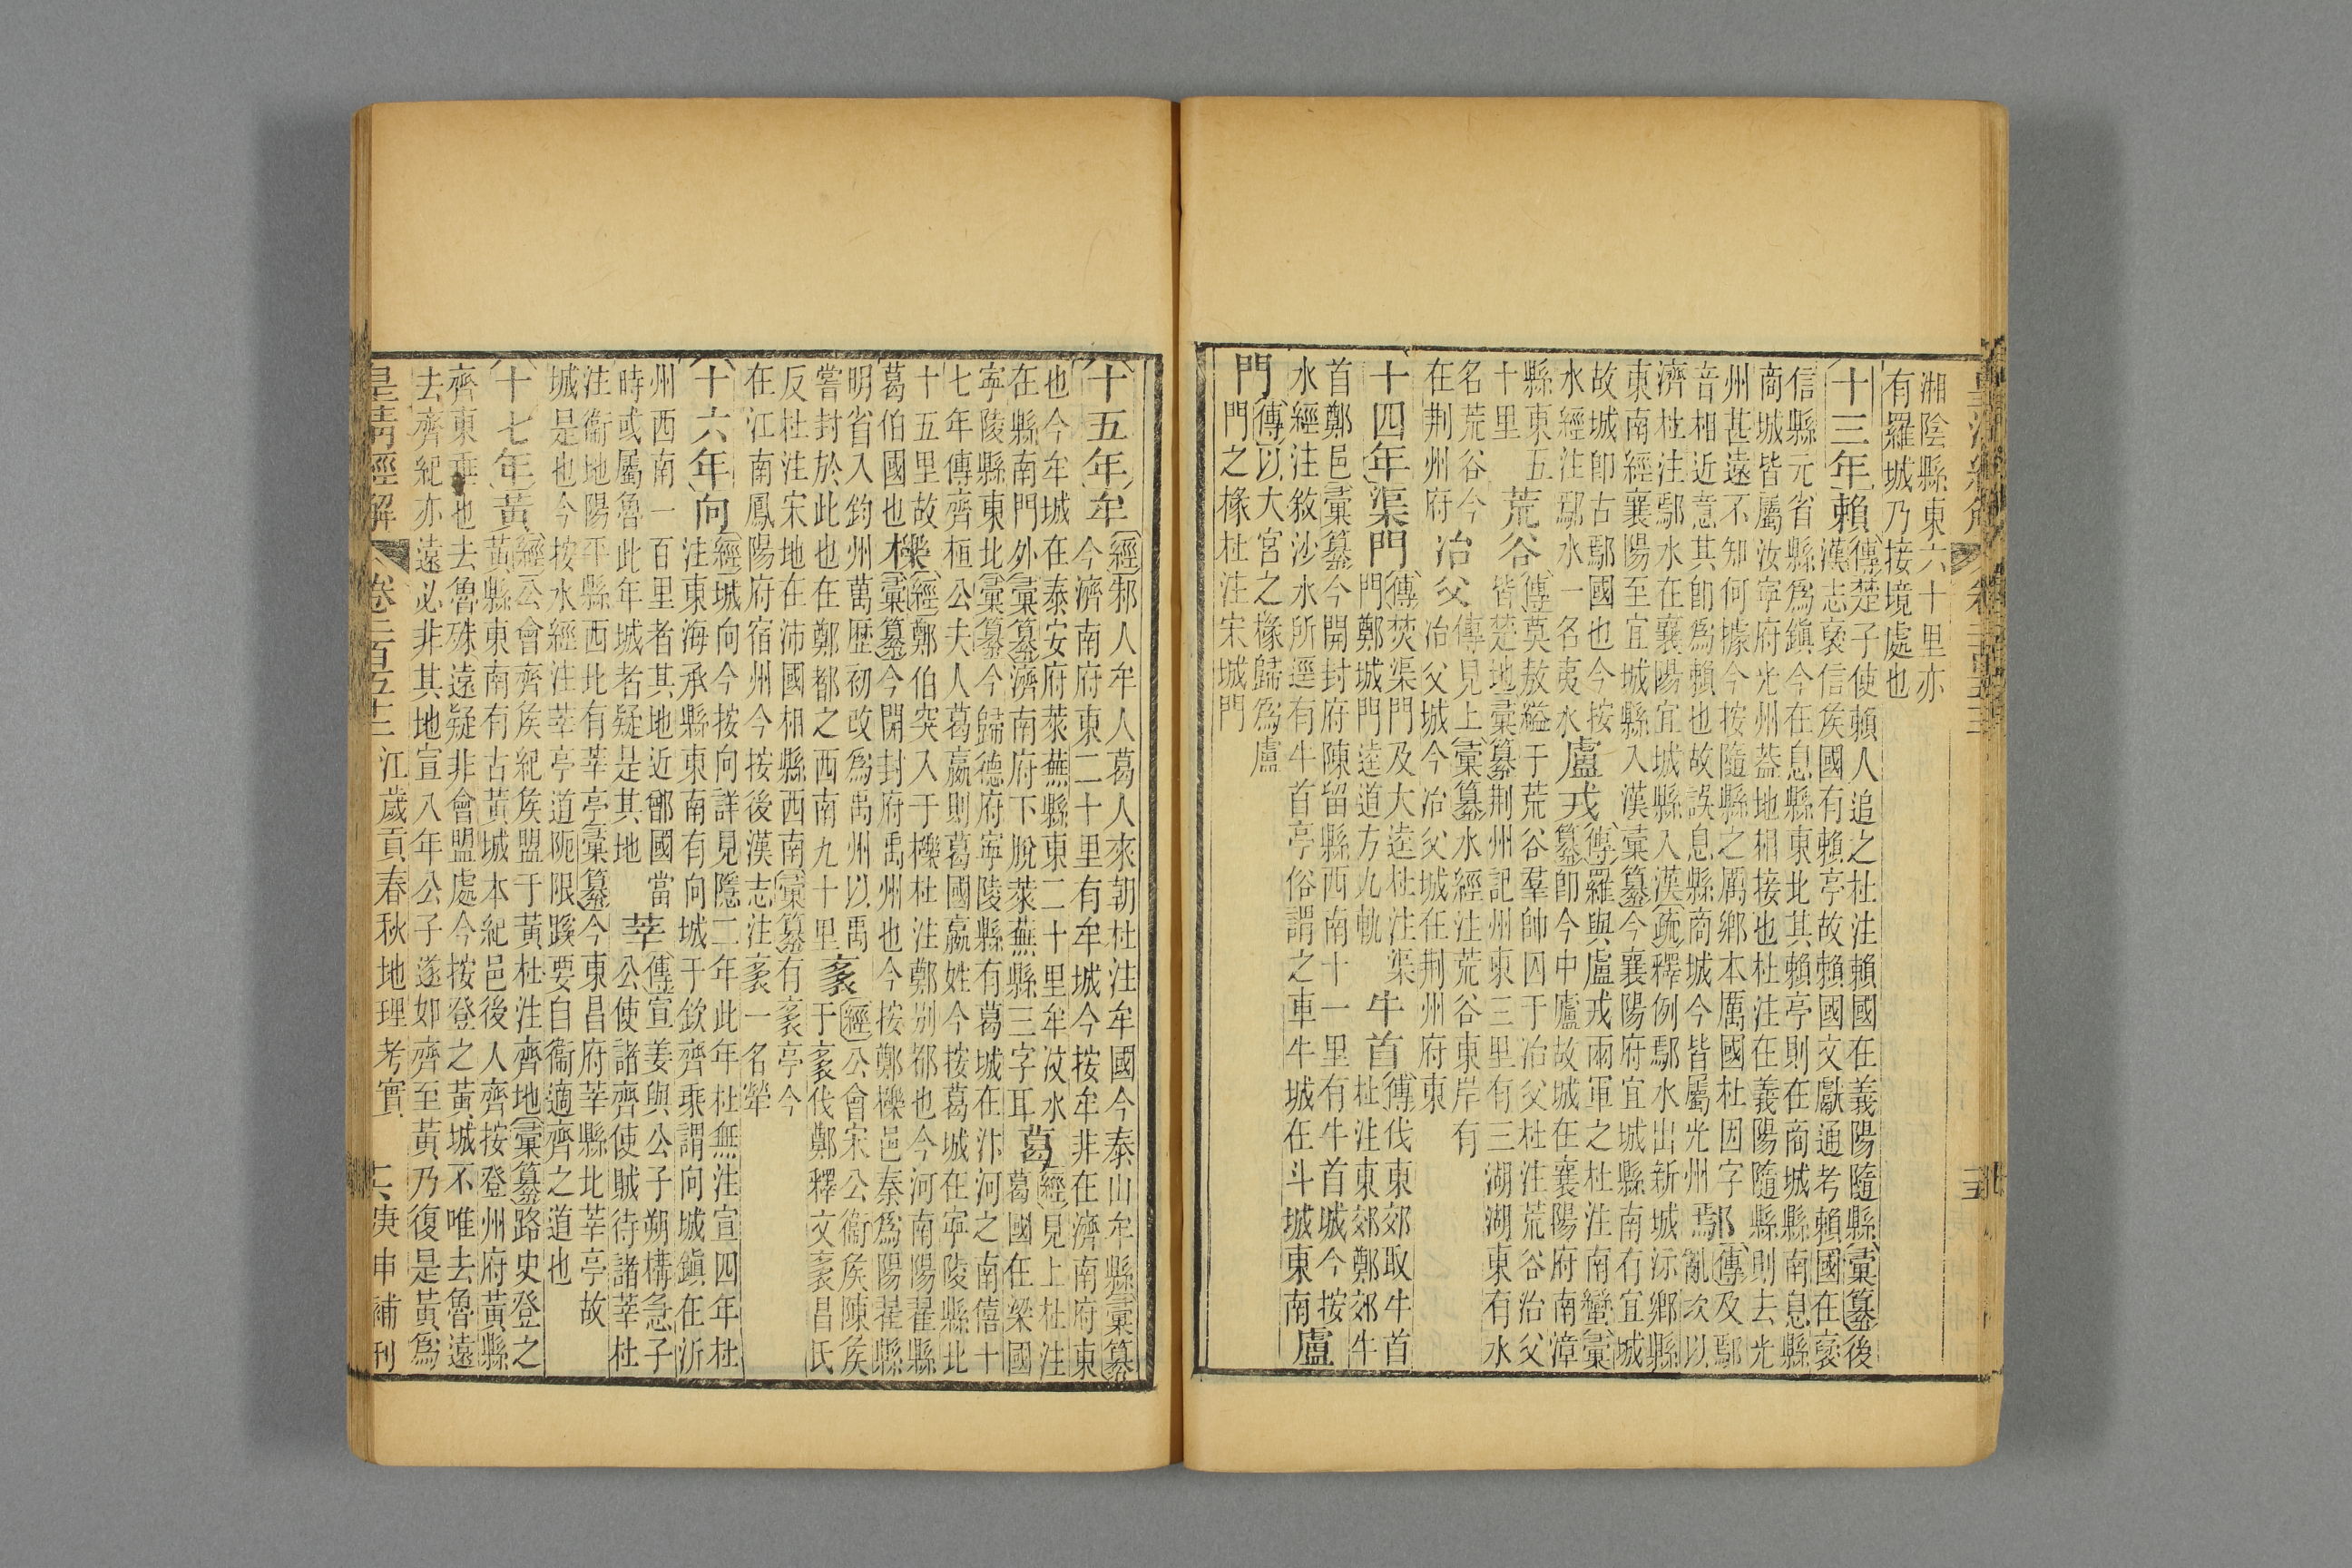 湘陰縣東六十里亦
有羅城乃接境處也
十三年賴
傳楚子使賴人追之杜注賴國在義陽隨縣彙纂後
漢志褒信侯國有賴亭故賴國文獻通考賴國在褒
信縣元省縣爲鎮今在息縣東北其賴亭則在商城縣南息縣
商城皆屬汝寧府光州蓋地相接也杜注在義陽隨縣則去光
州甚遠不知何據今按隨縣之厲鄉本厲國杜因字
音相近意其卽爲賴也故誤息縣商城今皆屬光州
鄢
傳及鄢
亂次以
濟杜注鄢水在襄陽宜城縣入漢疏釋例鄢水出新城沶鄉縣
東南經襄陽至宜城縣入漢彙纂今襄陽府宜城縣南有宜城
故城卽古鄢國也今按
水經注鄢水一名夷水
盧戎
傳羅與盧戎兩軍之杜注南蠻彙
纂卽今中廬故城在襄陽府南漳
縣東五
十里
荒谷
傳莫敖縊于荒谷羣帥囚于冶父杜注荒谷冶父
皆楚地彙纂荆州記州東三里有三湖湖東有水
名荒谷今
在荆州府
冶父
傳見上彙纂水經注荒谷東岸有
冶父城今冶父城在荆州府東
十四年渠門
傳焚渠門及大逵杜注渠
門鄭城門逵道方九軌
牛首
傳伐東郊取牛首
杜注東郊鄭郊牛
首鄭邑彙纂今開封府陳留縣西南十一里有牛首城今按
水經注敘沙水所逕有牛首亭俗謂之車牛城在斗城東南
盧
門
傳以大宮之椽歸爲盧
門之椽杜注宋城門
十五年牟
經邾人牟人葛人來朝杜注牟國今泰山牟縣彙纂
今濟南府東二十里有牟城今按牟非在濟南府東
也今牟城在泰安府萊蕪縣東二十里牟汶水
在縣南門外彙纂濟南府下脫萊蕪縣三字耳
葛
經見上杜注
葛國在梁國
寧陵縣東北彙纂今歸德府寧陵縣有葛城在汴河之南僖十
七年傳齊桓公夫人葛嬴則葛國嬴姓今按葛城在寧陵縣北
十五里故
葛伯國也
櫟
經鄭伯突入于櫟杜注鄭別都也今河南陽翟縣
彙纂今開封府禹州也今按鄭櫟邑秦爲陽翟縣
明省入鈞州萬歷初改爲禹州以禹
嘗封於此也在鄭都之西南九十里
袲
經公會宋公衞侯陳侯
于袲伐鄭釋文袲昌氏
反杜注宋地在沛國相縣西南彙纂有袲亭今
在江南鳳陽府宿州今按後漢志注袲一名犖
十六年向
經城向今按向詳見隱二年此年杜無注宣四年杜
注東海承縣東南有向城于欽齊乘謂向城鎮在沂
州西南一百里者其地近鄫國當
時或屬魯此年城者疑是其地
莘
傳宣姜與公子朔構急子
公使諸齊使賊待諸莘杜
注衞地陽平縣西北有莘亭彙纂今東昌府莘縣北莘亭故
城是也今按水經注莘亭道阨限蹊要自衞適齊之道也
十七年黃
經公會齊侯紀侯盟于黃杜注齊地彙纂路史登之
黃縣東南有古黃城本紀邑後人齊按登州府黃縣
齊東垂也去魯殊遠疑非會盟處今按登之黃城不唯去魯遠
去齊紀亦遠必非其地宣八年公子遂如齊至黃乃復是黃爲
皇淸經解
卷二百五十三
江歲貢春秋地理考實
庚申補刊